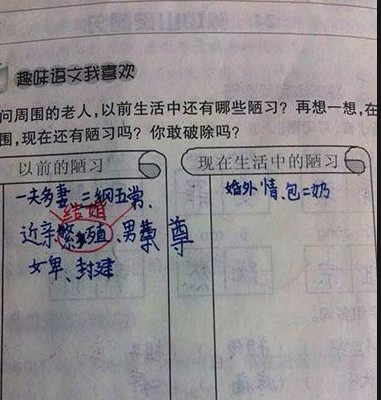 趣味语文我喜欢
问周围的老人，以前生活中还有哪些陋习？再想一想，在
围，现在还有陋习吗？你敢破除吗？
以前的陋习
现在生活中的陋习
一夫多妻、三纲五常、
结婚
近亲繁殖、男尊
女卑、封建
婚外情、包二奶